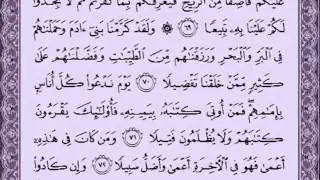 عَلَيْكُمْ قَاصِفًا مِّنَ ٱلرِّيحِ فَيُغْرِقَكُم بِمَا كَفَرْتُمْ ثُمَّ لَا تَجِدُوا۟
لَكُمْ عَلَيْنَا بِهِۦ تَبِيعًا ٦٩ وَلَقَدْ كَرَّمْنَا بَنِىٓ ءَادَمَ وَحَمَلْنَٰهُمْ
فِى ٱلْبَرِّ وَٱلْبَحْرِ وَرَزَقْنَٰهُم مِّنَ ٱلطَّيِّبَٰتِ وَفَضَّلْنَٰهُمْ عَلَىٰ
كَثِيرٍ مِّمَّنْ خَلَقْنَا تَفْضِيلًا ٧٠ يَوْمَ نَدْعُوا۟ كُلَّ أُنَاسٍۭ
بِإِمَٰمِهِمْ فَمَنْ أُوتِىَ كِتَٰبَهُۥ بِيَمِينِهِۦ فَأُو۟لَٰٓئِكَ يَقْرَءُونَ
كِتَٰبَهُمْ وَلَا يُظْلَمُونَ فَتِيلًا ٧١ وَمَن كَانَ فِى هَٰذِهِۦٓ
أَعْمَىٰ فَهُوَ فِى ٱلْءَاخِرَةِ أَعْمَىٰ وَأَضَلُّ سَبِيلًا ٧٢ وَإِن كَادُوا۟